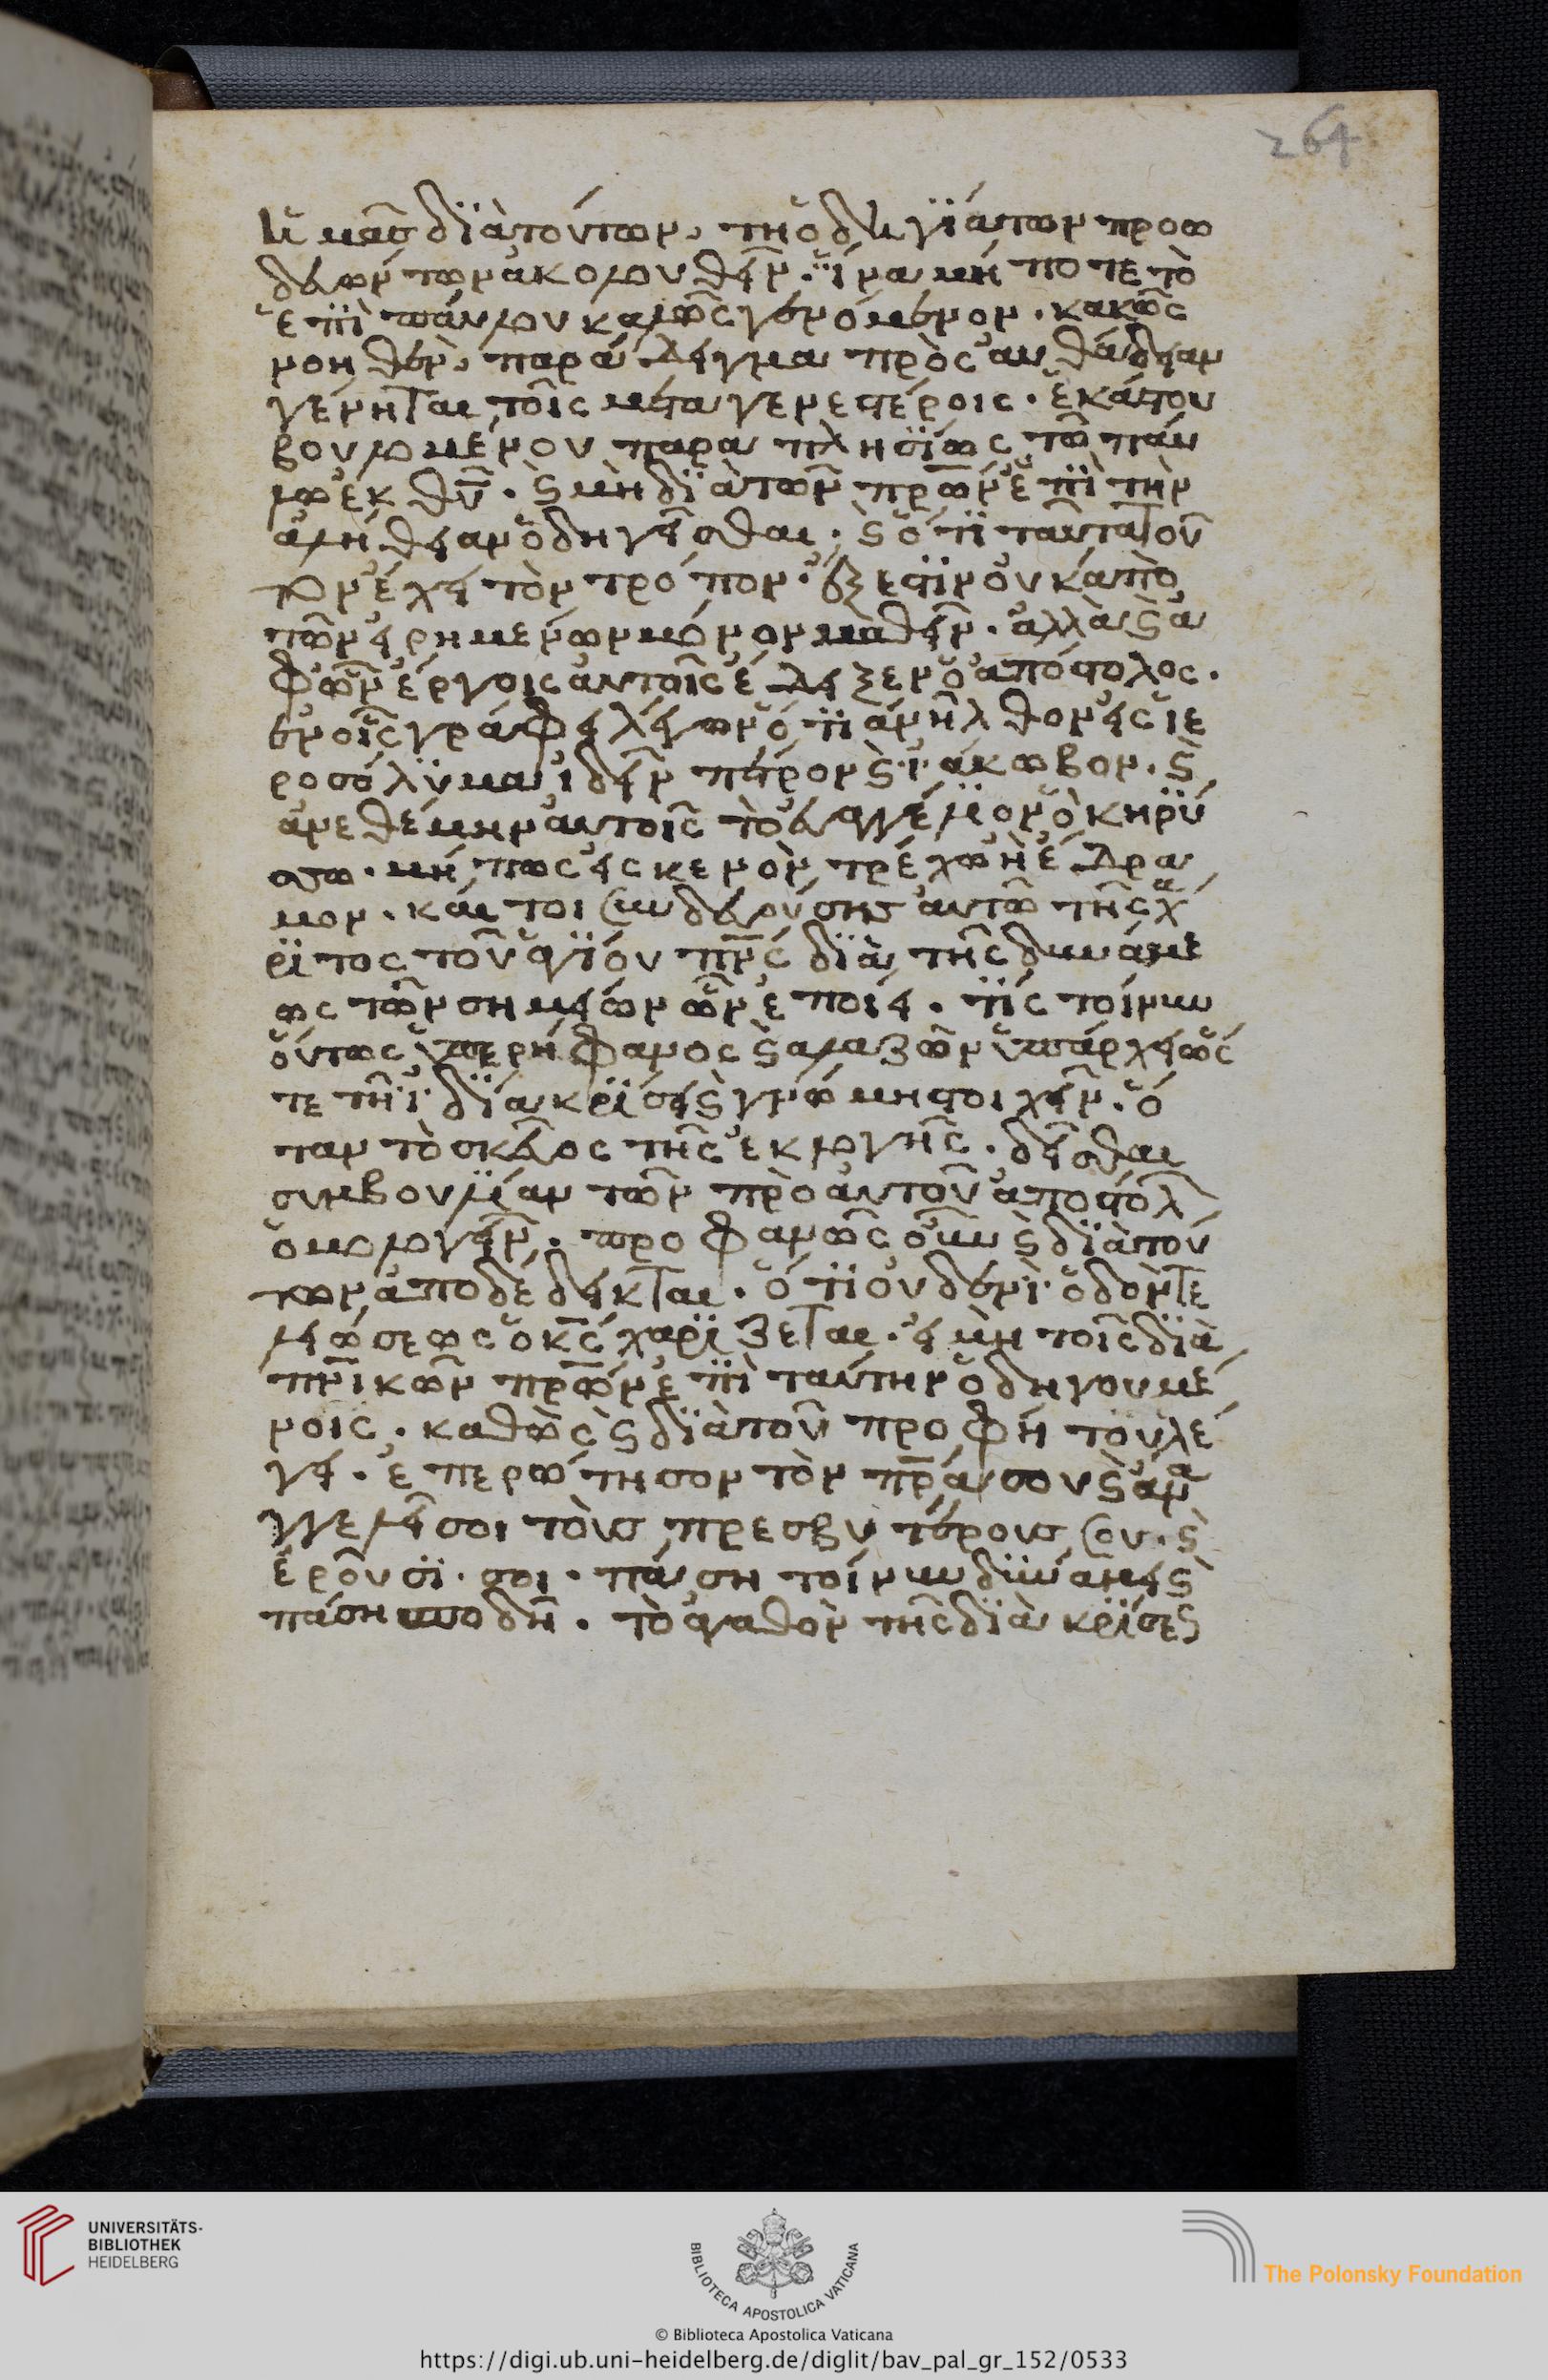 264
ἡμᾶς διὰ τούτων, τῇ ὁδηγίᾳ τῶν προω
δευκότων ἀκολουθεῖν. ἵνα μή ποτε τὸ
ἐπὶ παύλου καλῶς γενόμενον. κακῶς
νοηθὲν, παράδειγμα πρὸς αὐθάδειαν
γένηται τοῖς μεταγενεστέροις. ἑκάστου
βουλομένου παραπλησίως τῶ παύ
λω ἐκληθῆναι. καὶ μὴ διὰ τῶν πρων ἐπὶ τὴν
ἀλήθειαν ὁδηγεῖσθαι. καὶ ὅτι ταῦτα τοῦ
τον ἔχει τὸν τρόπον. ἔξεστιν οὐκ ἀπὸ
τῶν εἰρημένων μόνον μαθεῖν. ἀλλὰ καὶ ἀ
φῶν ἔργοις αὐτοῖς ἔδειξεν ὁ ἀπόστολος.
ἐν οἷς γράφει λέγων ὅτι ἀνῆλθον εἰς ἱε
ροσόλυμα ἰδεῖν πέτρον καὶ ἰάκωβον. καὶ
ἀνεθέμην αὐτοῖς τὸ εὐαγγέλιον ὃ κηρύ
σσω. μή πως εἰς κενὸν τρέχω ἢ ἔδρα
μον. καίτοι συνοδευούσης αὐτῶ τῆς χά
ριτος τοῦ ἁγίου πνς διὰ τῆς δυνάμε
ως τῶν σημείων ὧν ἐποίει. τίς τοίνυν
οὕτως ὑπερήφανος καὶ ἀλαζὼν ὑπάρχει ὥς
τε τῇ ἰδίᾳ κρίσει καὶ γνώμῃ στοιχεῖν. ὅ
ταν τὸ σκεῦος τῆς ἐκλογῆς. δεῖσθαι
συμβουλίαν τῶν πρὸ αὐτοῦ ἀποστόλ
ὁμολογεῖν. προφανῶς οὖν καὶ διὰ τού
των ἀποδέδεικται. ὅτι οὐδενὶ ὁδὸν τε
λειώσεως ὁ κς χαρίζεται. εἰ μὴ τοῖς διὰ
πνικῶν πρων ἐπὶ ταύτην ὁδηγουμέ
νοις. καθὼς καὶ διὰ τοῦ προφήτου λέ
γει. ἐπερώτησον τὸν πρα σου καὶ ἀνα
γγελεῖ σοι τοὺς πρεσβυτέρους σου. καὶ
ἐροῦσί σοι. πάσῃ τοίνυν δυνάμει καὶ
πάσῃ σπουδῇ. τὸ ἀγαθὸν τῆς διακρίσεως
UNIVERSITÄTS-
BIBLIOTHEK
HEIDELBERG
BIBLIOTECA APOSTOLICA VATICANA
The Polonsky Foundation
© Biblioteca Apostolica Vaticana
https://digi.ub.uni-heidelberg.de/diglit/bav_pal_gr_152/0533